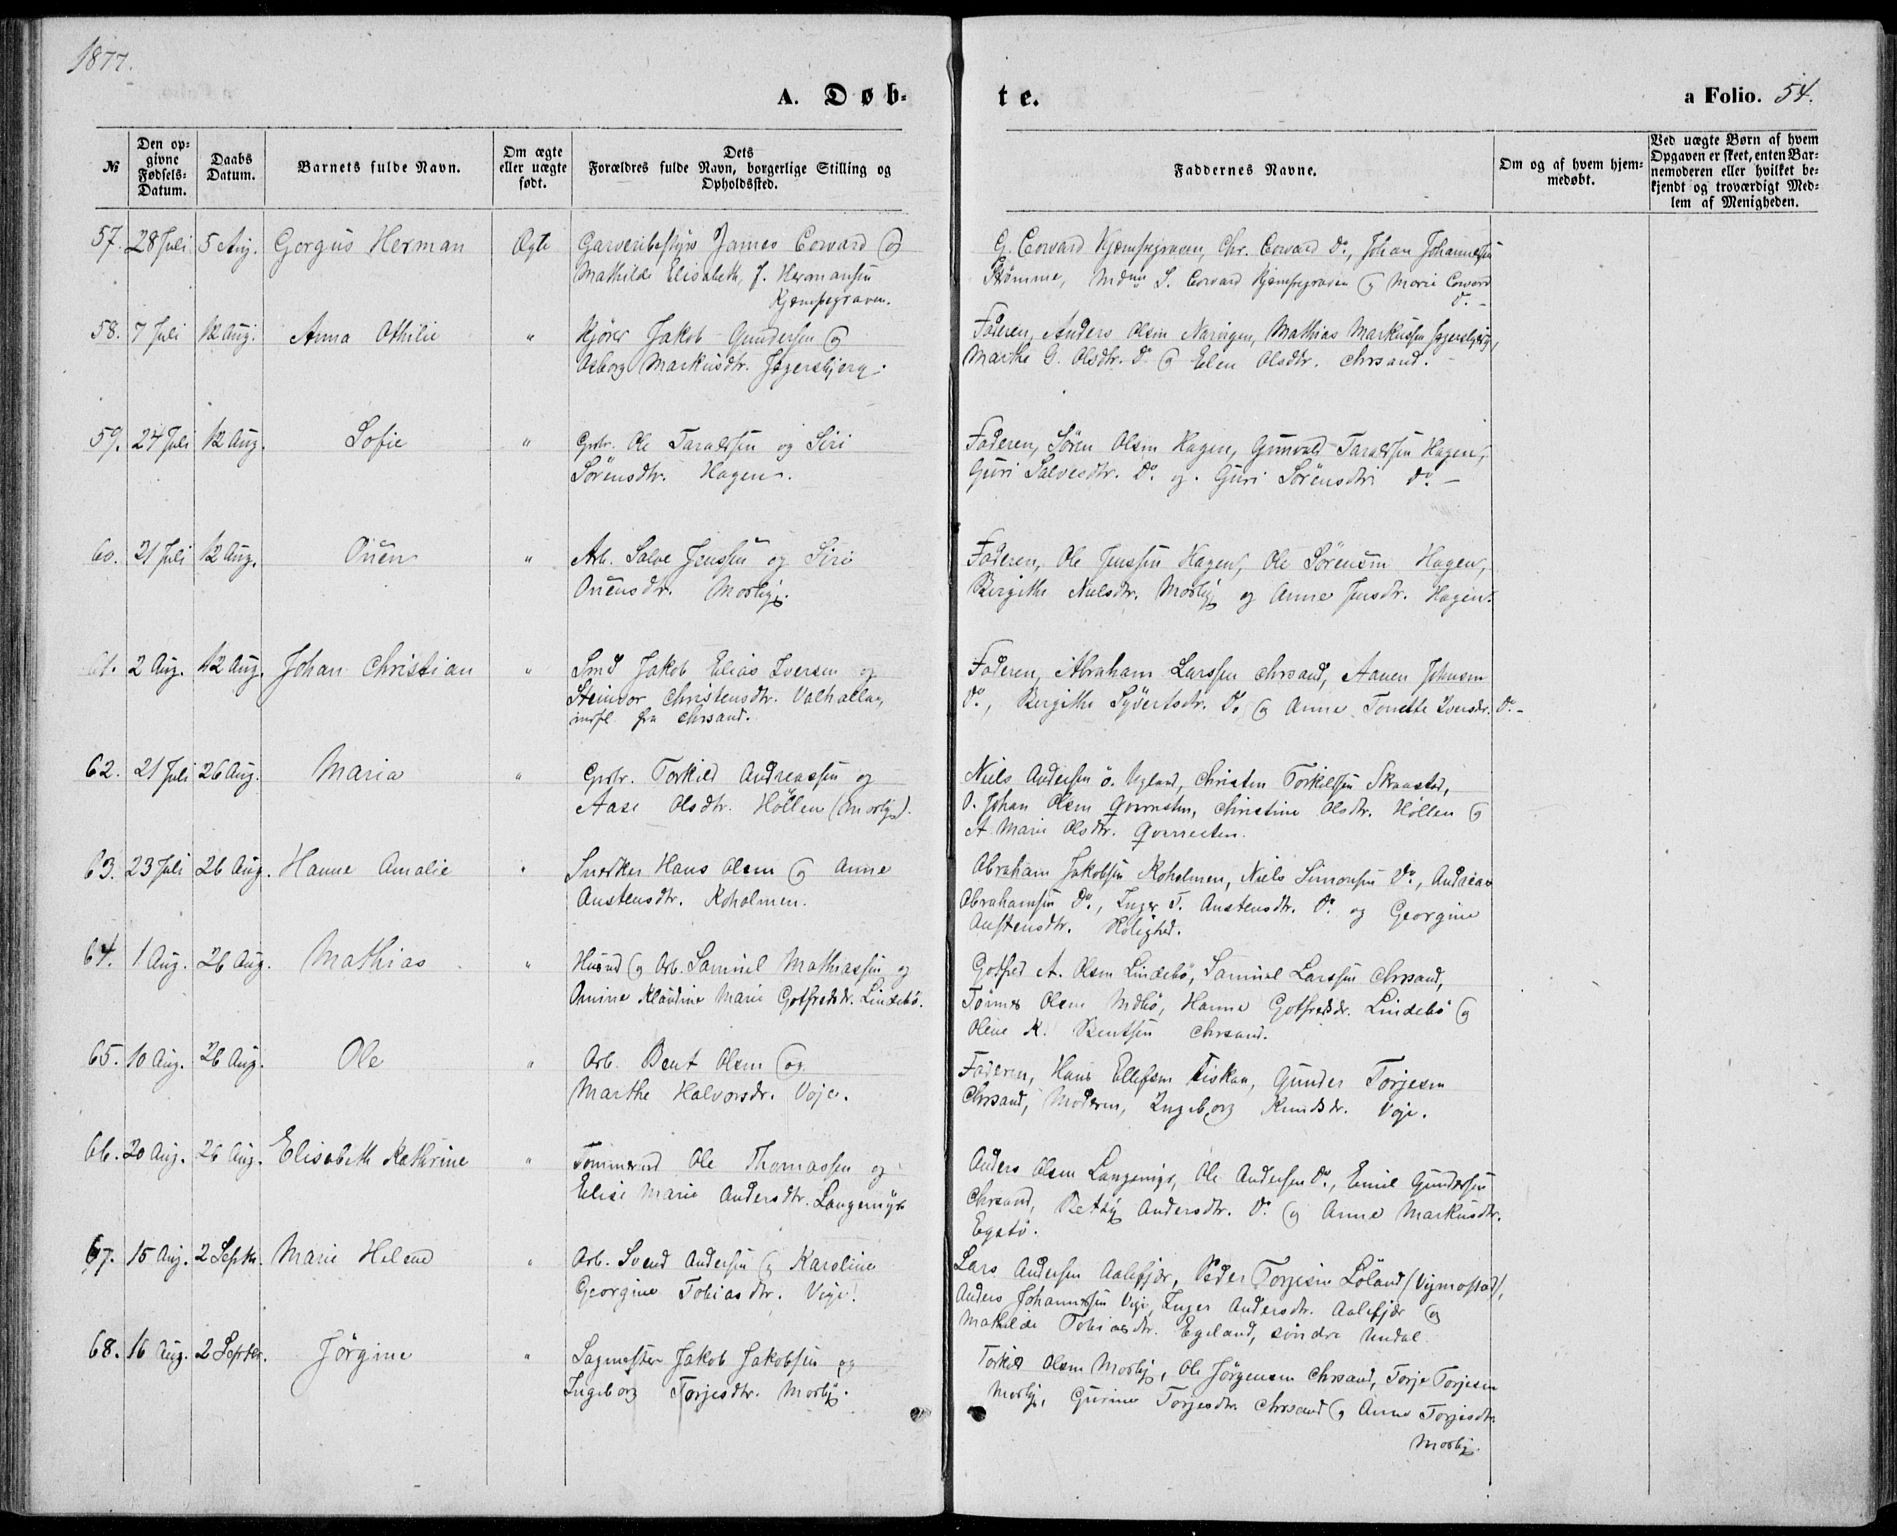 1877.
A. Døb-
te.
a Folio. 54.
№
Den op-
givne
Fødsels-
Datum.
Daabs
Datum.
Barnets fulde Navn.
Om ægte
eller uægte
født.
Dets
Forældres fulde Navn, borgerlige Stilling og
Opholdssted.
Faddernes Navne.
Om og af hvem hjem-
medøbt.
Ved uægte Børn af hvem
Opgaven er skeet, enten Bar-
nemoderen eller hvilket be-
kjendt og troværdigt Med-
lem af Menigheden.
57. 28 Juli 5 Aug. Gergus Herman Ægte Garveribestyr James Corvard og
Mathilde Elisabeth, f. Hermansen
Kjæmpegraven.
G. Corvard Kjæmpegraven, Chr. Corvard Do, Johan Johannesen
Strømme, S. Corvard Kjæmpegraven og Marie Corvard
Do. -
58. 7 Juli 12 Aug. Anna Othilie " Kjører Jakob Gundersen og
Asborg Markusdtr. Jegersbjerg.
Faderen, Anders Olsen Narvigen, Mathias Markussen Jegersbjerg,
Marthe G. Olsdtr. Do og Elen Olsdtr. Chrsand.
59. 24 Juli 12 Aug. Sofie " Grbr. Ole Taraldsen og Siri
Sørensdtr. Hagen.
Faderen, Søren Olsen Hagen, Gunvald Taraldsen Hagen,
Guri Salvesdtr. Do. og. Guri Sørensdtr Do. -
60. 21 Juli 12 Aug. Ouen " Arb. Salve Jenssen og Siri
Ouensdtr. Mosby.
Faderen, Ole Jenssen Hagen, Ole Sørensen Hagen,
Birgithe Nielsdtr. Mosby og Anne Jensdtr. Hagen.
61. 2 Aug. 12 Aug. Johan Christian " Smd Jakob Elias Iversen og
Steinvor Christensdtr. Valhalla,
indfl. fra Chrsand.
Faderen, Abraham Larssen Chrsand, Aanen Johnsen
Do, Birgithe Syvertsdtr. Do og Anne Tonette Iversdtr. Do -
62. 21 Juli 26 Aug. Maria " Grbr. Torkild Andreassen og
Aase Olsdtr. Höllen (Mosby).
Niels Andersen ö. Ugland, Christen Torkildsen Skraastad,
O. Johan Olsen Christine Olsdtr. Höllen og
A. Marie Olsdtr.
63. 23 Juli 26 Aug. Hanne Amalie " Snedker Hans Olsen og Anne
Austensdtr. Koholmen.
Abraham Jakobsen Koholmen, Niels Simonsen Do, Andreas
Abrahamsen Do, Inger T. Austensdtr. Do. og Georgine
Austensdtr. Rolighed.
64. 1 Aug. 26 Aug. Mathias " Husmd og Arb. Samuel Mathiassen og
Omine Klaudine Marie Gotfredsdtr. Lindebö.
Gotfred A. Olsen Lindebö, Samuel Larssen Chrsand,
Tönnes Olsen Hanne Gotfredsdtr. Lindebö og
Oline K. Bentsen Chrsand.
65. 10 Aug. 26 Aug. Ole " Arb. Bent Olsen og
Marthe Halvorsdtr. Voje.
Faderen, Hans Ellefsen Fiskaa, Gunder Torjesen
Chrsand, Moderen, Ingeborg Knudsdtr. Voje.
66. 20 Aug. 26 Aug. Elisabeth Kathrine " Tömmermd Ole Thomassen og
Elise Marie Andersdtr. Langemyr
Anders Olsen Langemyr, Ole Andersen Do, Emil Gundersen
Chrsand, Betsy Andersdtr. Do. og Anne Markusdtr.
Egebö.
67. 15 Aug. 2 Septbr. Marie Helene " Arb. Svend Andersen og Karoline
Georgine Tobiasdtr. Vige.
Lars Andersen Aalefjær, Peder Torjesen Löland (Vigmostad),
Anders Johannesen Vige, Inger Andersdtr. Aalefjær og
Mathilde Tobiasdtr. Egeland, söndre Undal
68. 16 Aug. 2 Septbr. Jörgine " Sagmester Jakob Jakobsen og
Ingeborg Torjesdtr. Mosby.
Torkild Olsen Mosby, Ole Jörgensen Chrsand, Torje Torjesen
Mosby, Gurine Torjesdtr. Chrsand og Anne Torjesdtr.
Mosby.